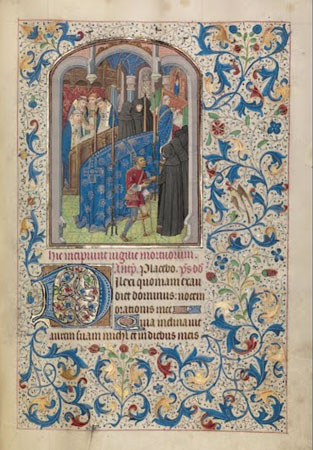 Hic incipiunt vigilie mortuorum.
Antip. Placebo. p̃s dd
Dilexi quoniam exau
diet dominus: vocem
orationis mee
Quia inclinavit
aurem suam michi et in diebus meis